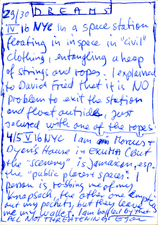 29/30 DREAMS
IV 16 NYC In a space station
floating in space in "civil"
clothing, entangling a heap
of strings and ropes. I explained
to David Fried that it is NO
problem to exit the station
and float outside, just
secured with one of the ropes
4/5 V 16 NYC I am
Dyer's House in Exuma
the "scenery" is Jamaican, esp.
the "public places" spaces. 1
person is robbing me of my
knapsack, the other one
out my pockets, but they leave
me my wallet, I am baffled by that &
FEEL NOT THREATENED